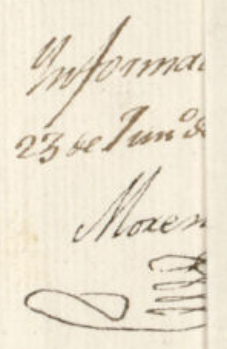 Informa
23 de Jun.º de
Moren